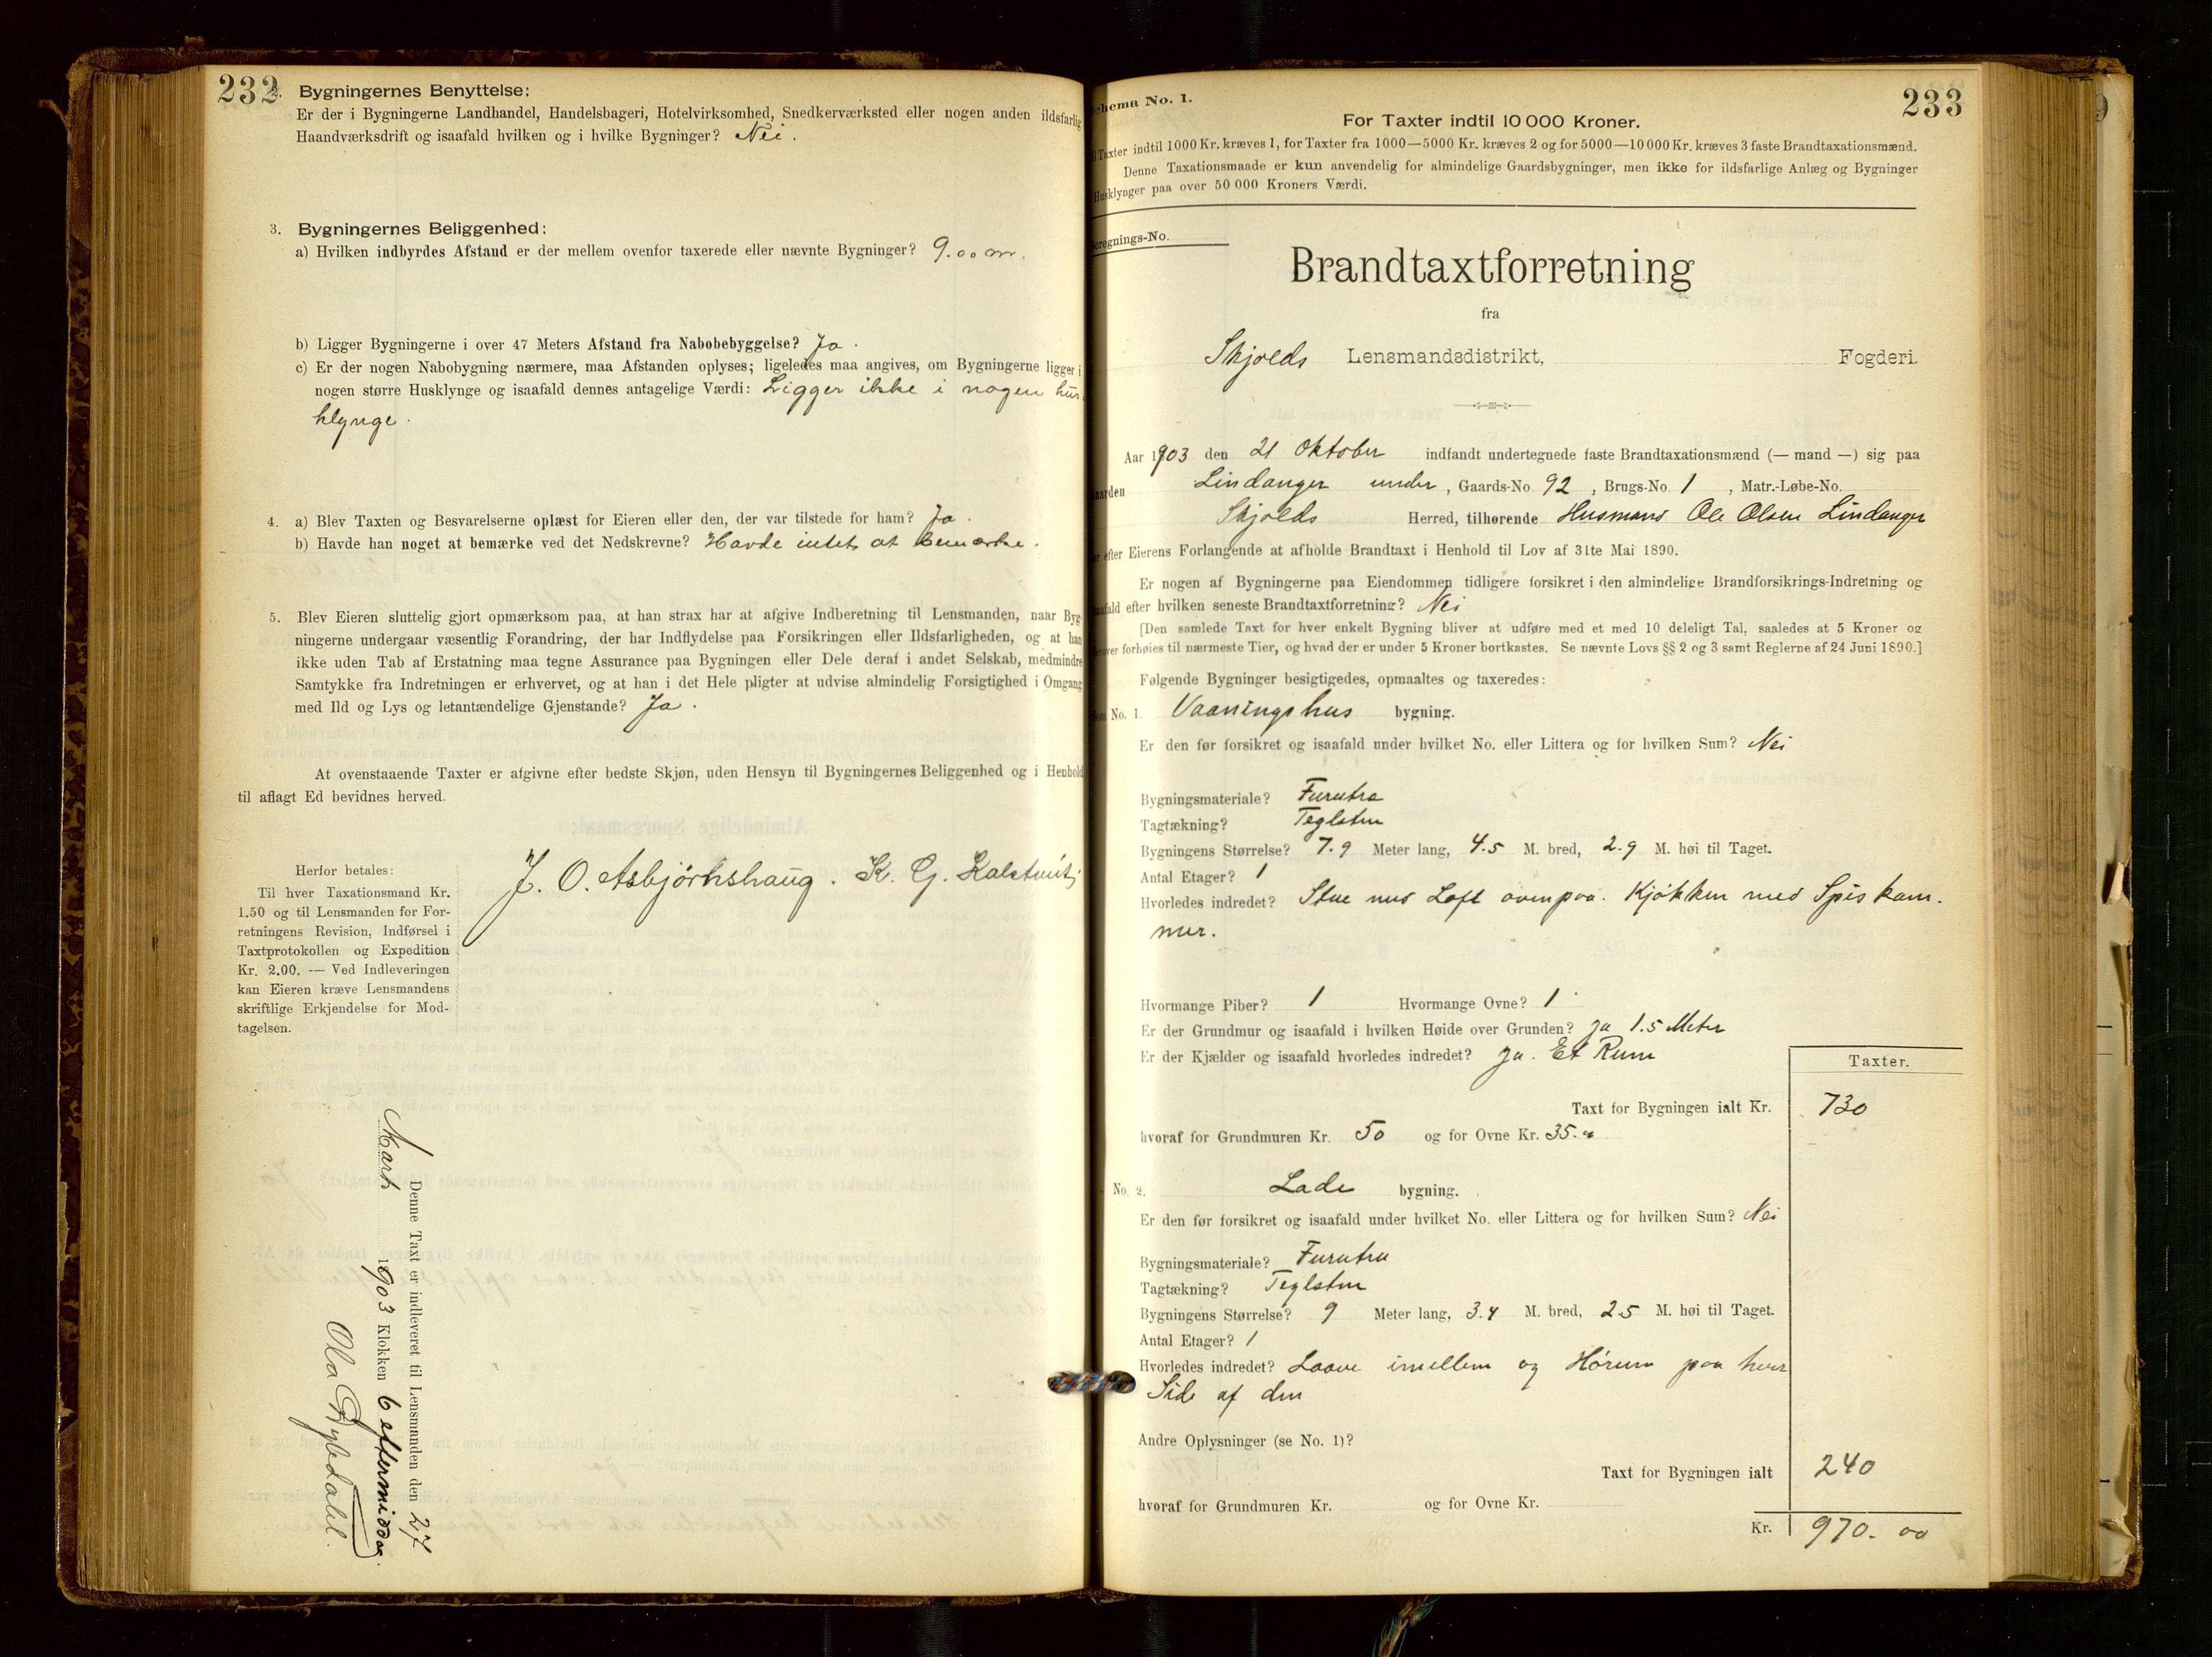 232
2. Bygningernes Benyttelse:
Er der i Bygningerne Landhandel, Handelsbageri, Hotelvirksomhed, Snedkerværksted eller nogen anden ildsfarlig
Haandværksdrift og isaafald hvilken og i hvilke Bygninger? Nei.
3. Bygningernes Beliggenhed:
a) Hvilken indbyrdes Afstand er der mellem ovenfor taxerede eller nævnte Bygninger? 9.00 m.
b) Ligger Bygningerne i over 47 Meters Afstand fra Nabobebyggelse? Ja.
c) Er der nogen Nabobygning nærmere, maa Afstanden oplyses; ligeledes maa angives, om Bygningerne ligger i
nogen større Husklynge og isaafald dennes antagelige Værdi: Ligger ikke i nogen hus
klynge.
4. a) Blev Taxten og Besvarelserne oplæst for Eieren eller den, der var tilstede for ham? Ja.
b) Havde han noget at bemærke ved det Nedskrevne? Havde intet at bemærke.
5. Blev Eieren sluttelig gjort opmærksom paa, at han strax har at afgive Indberetning til Lensmanden, naar Byg-
ningerne undergaar væsentlig Forandring, der har Indflydelse paa Forsikringen eller Ildsfarligheden, og at han
ikke uden Tab af Erstatning maa tegne Assurance paa Bygningen eller Dele deraf i andet Selskab, medmindre
Samtykke fra Indretningen er erhvervet, og at han i det Hele pligter at udvise almindelig Forsigtighed i Omgang
med Ild og Lys og letantændelige Gjenstande? Ja.
At ovenstaaende Taxter er afgivne efter bedste Skjøn, uden Hensyn til Bygningernes Beliggenhed og i Henhold
til aflagt Ed bevidnes herved.
J. O. Asbjörnshaug. K. G.
Herfor betales:
Til hver Taxationsmand Kr.
1.50 og til Lensmanden for For-
retningens Revision, Indførsel i
Taxtprotokollen og Expedition
Kr. 2.00. — Ved Indleveringen
kan Eieren kræve Lensmandens
skriftlige Erkjendelse for Mod-
tagelsen.
Denne Taxt er indleveret til Lensmanden den 27
Marts 1903 Klokken 6 eftermiddag.
Ola
233
Schema No. 1.
For Taxter indtil 10 000 Kroner.
Til Taxter indtil 1000 Kr. kræves 1, for Taxter fra 1000—5000 Kr. kræves 2 og for 5000—10 000 Kr. kræves 3 faste Brandtaxationsmænd.
Denne Taxationsmaade er kun anvendelig for almindelige Gaardsbygninger, men ikke for ildsfarlige Anlæg og Bygninger
Husklynger paa over 50 000 Kroners Værdi.
Beregnings-No.
Brandtaxtforretning
fra
Skjolds Lensmandsdistrikt, Fogderi.
Aar 1903 den 21 Oktober indfandt undertegnede faste Brandtaxationsmænd (— mand —) sig paa
Gaarden Lindanger under, Gaards-No. 92, Brugs-No. 1, Matr.-Løbe-No.
Skjolds Herred, tilhørende Husmand Ole Olsen Lindanger
for efter Eierens Forlangende at afholde Brandtaxt i Henhold til Lov af 31te Mai 1890.
Er nogen af Bygningerne paa Eiendommen tidligere forsikret i den almindelige Brandforsikrings-Indretning og
isaafald efter hvilken seneste Brandtaxtforretning? Nei
[Den samlede Taxt for hver enkelt Bygning bliver at udføre med et med 10 deleligt Tal, saaledes at 5 Kroner og
derover forhøies til nærmeste Tier, og hvad der er under 5 Kroner bortkastes. Se nævnte Lovs §§ 2 og 3 samt Reglerne af 24 Juni 1890.]
Følgende Bygninger besigtigedes, opmaaltes og taxeredes:
Som No. 1. Vaaningshus bygning.
Er den før forsikret og isaafald under hvilket No. eller Littera og for hvilken Sum? Nei
Bygningsmateriale? Furutræ
Tagtækning? Teglsten
Bygningens Størrelse? 7.9 Meter lang, 4.5 M. bred, 2.9 M. høi til Taget.
Antal Etager? 1
Hvorledes indredet? Stue med Loft ovenpaa. Kjøkken med Spiskam-
mer.
Hvormange Piber? 1 Hvormange Ovne? 1
Er der Grundmur og isaafald i hvilken Høide over Grunden? Ja 1.5 Meter
Er der Kjælder og isaafald hvorledes indredet? Ja. Et Rum
Taxter.
Taxt for Bygningen ialt Kr. 730
hvoraf for Grundmuren Kr. 50 og for Ovne Kr. 35.00
No. 2. Lade bygning.
Er den før forsikret og isaafald under hvilket No. eller Littera og for hvilken Sum? Nei
Bygningsmateriale? Furutræ
Tagtækning? Teglsten
Bygningens Størrelse? 9 Meter lang, 3.4 M. bred, 2.5 M. høi til Taget.
Antal Etager? 1
Hvorledes indredet? Laave imellem og Hørum paa hver
Side af den
Andre Oplysninger (se No. 1)?
Taxt for Bygningen ialt 240
hvoraf for Grundmuren Kr. og for Ovne Kr.
Kr. 970.00